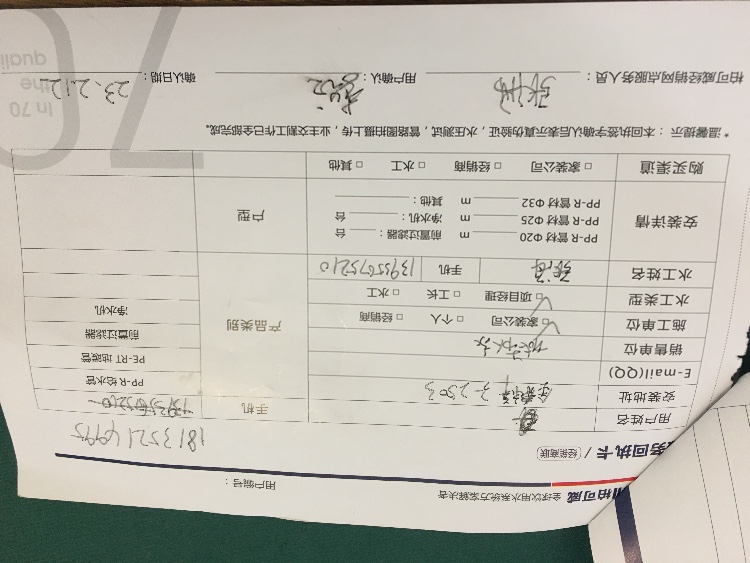 柏可威 全球饮用水系统方案解决者
用户编号：
务回执卡 / 经销商联
18135214995
用户姓名 手机
安装地址 3-2503
E-mail(QQ)
销售单位
施工单位 ☑ 家装公司 □ 个人 □ 经销商
水工类型 ☑ 项目经理 □ 工长 □ 水工
水工姓名 手机 13955675210
产品类别
PP-R 给水管
PE-RT 地暖管
前置过滤器
净水机
安装详情
PP-R 管材 Φ20 m 前置过滤器： 台
PP-R 管材 Φ25 m 净水机： 台
PP-R 管材 Φ32 m 其他：
户型
购买渠道 □ 家装公司 □ 经销商 □ 水工 □ 其他
* 温馨提示：本回执签字确认后表示真伪验证，水压测试，管路图拍摄上传，业主交割工作已全部完成。
柏可威经销网点服务人员： 用户确认： 确认日期： 23.2.12
In 70
the
quali
70